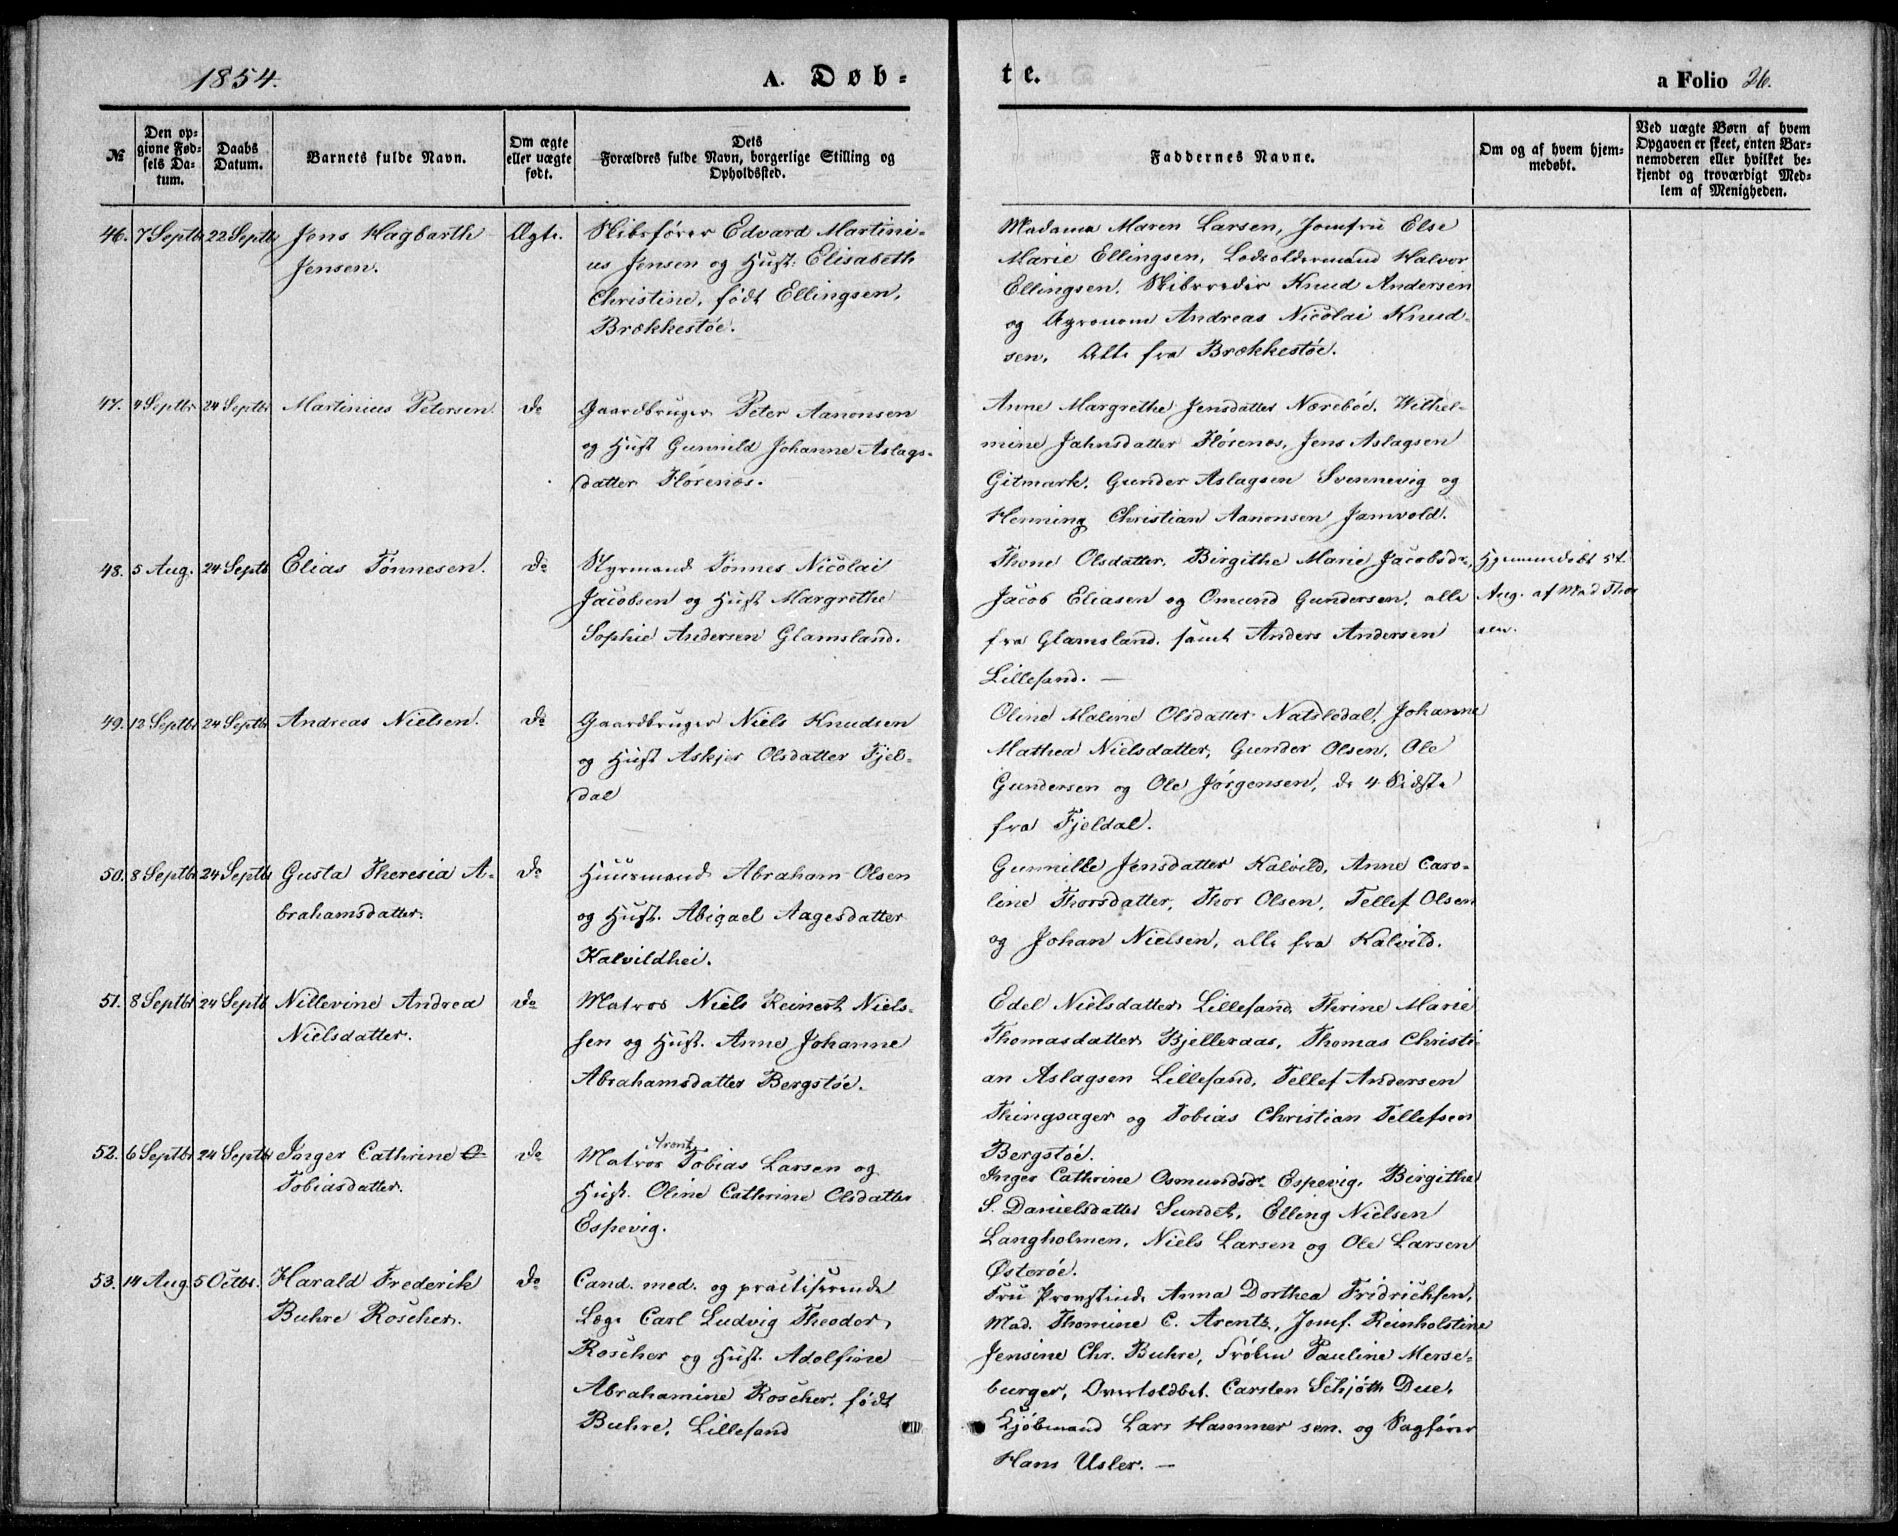 1854.
A. Døb-
te.
a Folio 26.
№
Den op-
givne Fød-
sels Da-
tum.
Daabs
Datum.
Barnets fulde Navn.
Om ægte
eller uægte
født.
Dets
Forældres fulde Navn, borgerlige Stilling og
Opholdssted.
Faddernes Navne.
Om og af hvem hjem-
medøbt.
Ved uægte Børn af hvem
Opgaven er skeet, enten Bar-
nemoderen eller hvilket be-
kjendt og troværdigt Med-
lem af Menigheden.
46. 7 Septbr 22 Septbr Jens Hagbarth
Jensen.
Ægte.
Skibsfører Edvard Martini-
us Jensen og Hust: Elisabeth
Christine, født Ellingsen,
Brækkestøe.
Madame Maren Larsen, Jomfru Else
Marie Ellingsen, Lodsoldermand Halvor
Ellingsen. Skibsreder Knud Andersen
og Agronom Andreas Nicolai Knud-
sen, Alle fra Brækkestøe.
47. 4 Septbr 24 Septbr Martinius Petersen.
do
Gaardbruger Peter Aanonsen
og Hust Gunnild Johanne Aslags-
datter Flørenæs.
Anne Margrethe Jensdatter Nærebøe. Wilhel-
mine Jahnsdatter Fløsenæs, Jens Aslagsen
Gitmark. Gunder Aslagsen Svennevig og
Henning Christian Aanonsen Jamvold.
48. 5 Aug. 24 Septb Elias Tønnesen.
do
Styrmand Tønnes Nicolai
Jacobsen og Hust Margrethe
Sophie Andersen Glamsland.
Thone Olsdatter, Birgithe Marie Jacobsdr,
Jacob Eliasen og Omund Gundersen, alle
fra Glamsland. samt Anders Andersen
Lillesand. —
Hjemmedøbt 5t
Aug. af Mad Thor
sen.
49. 12 Septbr 24 Septbr Andreas Nielsen.
do
Gaardbruger Niels Knudsen
og Hust Askjer Olsdatter Fjel-
dal
Oline Maline Olsdatter Natsledal, Johanne
Mathea Nielsdatter, Gunder Olsen, Ole
Gundersen og Ole Jørgensen, de 4 Sidste
fra Fjeldal.
50. 8 Septbr 24 Septbr Gusta Theresia A-
brahamsdatter.
do
Huusmand Abraham Olsen
og Hust. Abigael Aagesdatter
Kalvildhei.
Gunnille Jensdatter Kalvild, Anne Caro-
line Thorsdatter, Thor Olsen, Tellef Olsen
og Johan Nielsen, alle fra Kalvild.
51. 8 Septbr 24 Septb Nillevine Andrea
Nielsdatter.
do
Matros Niels Reinert Niels-
sen og Hust. Anne Johanne
Abrahamsdatter Bergstøe.
Edel Nielsdatter Lillesand, Thrine Marie
Thomasdatter Bjelleraas, Thomas Christi-
an Aslagsen Lillesand, Tellef Andersen
Thingsager og Tobias Christian Tellefsen
Bergstøe.
52. 6 Septbr 24 Septbr Inger Cathrine O
Tobiasdatter.
do
Arent
Matros Tobias Larsen og
Hust. Oline Cathrine Olsdatter
Espevig.
Inger Cathrine Osmundsdr. Espevig, Birgithe
S. Danielsdatter Sundet, Elling Nielsen
Langholmen, Niels Larsen og Ole Larsen
Østerøe.
53. 14 Aug. 5 Octbr. Harald Frederik
Buhre Roscher.
do
Cand. med. og practiserende
Læge Carl Ludvig Theodor
Roscher og Hust. Adolfine
Abrahamine Roscher, født
Buhre, Lillesand
Fru Provstinde Anna Dorthea Fridrichsen,
Mad. Thomine C. Arentz, Jomf. Reinholstine
Jensine Chr. Buhre, Frøken Pauline Merse-
burger, Overtoldbet. Carsten Schjøth Due,
Kjøbmand Lars Hammer sen. og Sagfører
Hans Usler. —